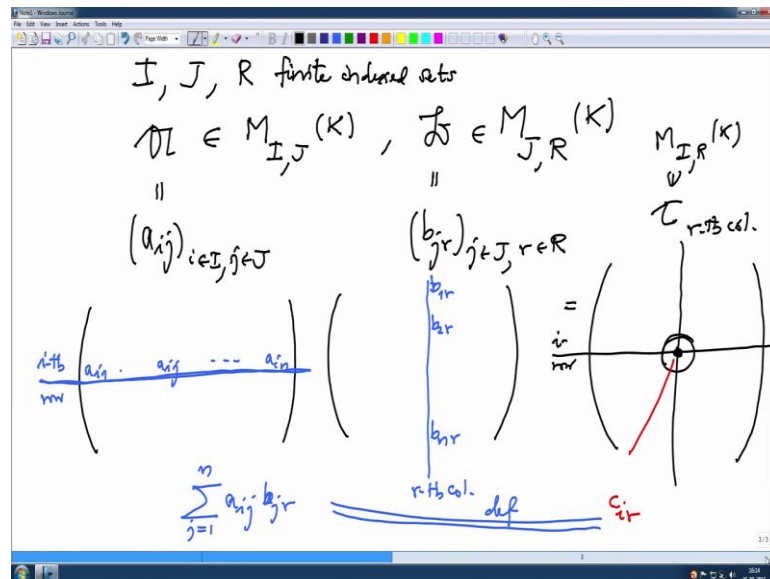 Note1 - Windows Journal
File Edit View Insert Actions Tools Help
Page Width
I, J, R finite indexed sets
𝔄 ∈ M_{I,J}(K), 𝔅 ∈ M_{J,R}(K) M_{I,R}(K)
= = ∪
(a_{ij})_{i∈I, j∈J} (b_{jr})_{j∈J, r∈R} r-th col.
b_{1r}
b_{2r}
=
i-th a_{i1} . a_{ij} ... a_{in} i-
row row
b_{nr}
r-th col.
\sum_{j=1}^{n} a_{ij} b_{jr} def c_{ir}
3/3
3
16:24